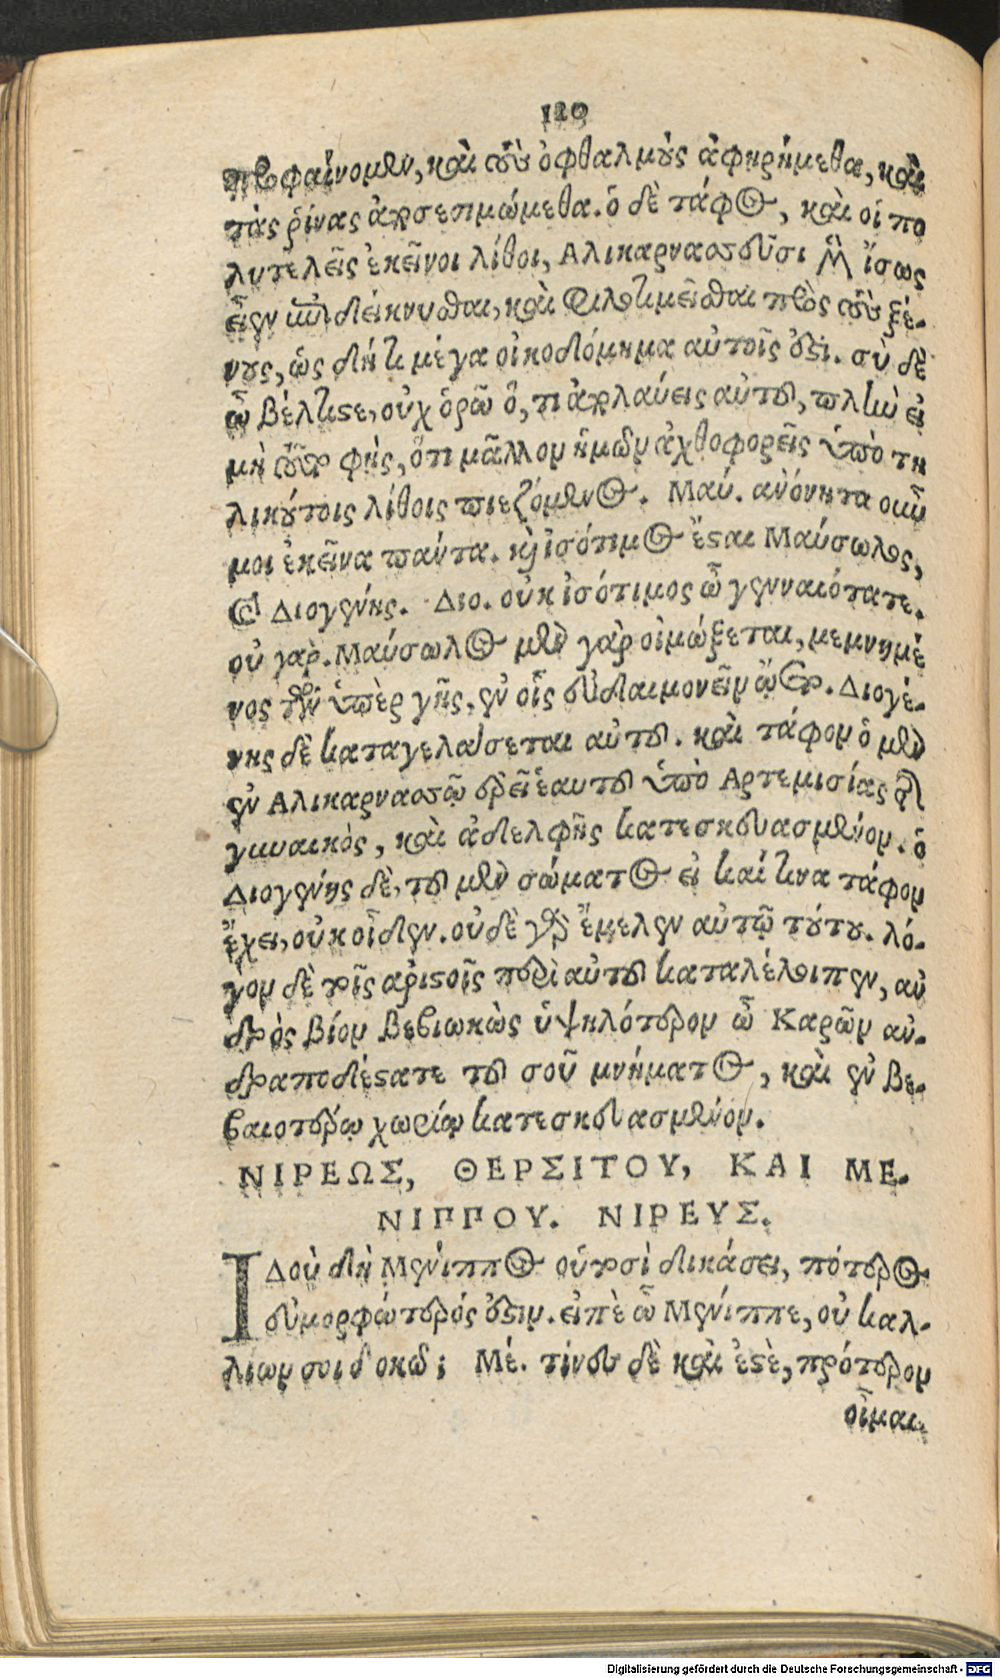 120
προφαίνομεν, καὶ τοὺς ὀφθαλμοὺς ἀφῃρήμεθα, καὶ
τὰς ῥίνας ἀποσεσιμώμεθα. ὁ δὲ τάφος, καὶ οἱ πο
λυτελεῖς ἐκεῖνοι λίθοι, Αλικαρνασσεῦσι μὲν ἴσως
εἶεν ἐπιδείκνυσθαι, καὶ φιλοτιμεῖσθαι πρὸς τοὺς ξέ-
νους, ὡς δή τι μέγα οἰκοδόμημα αὐτοῖς ἐστι. σὺ δὲ
ὦ βέλτιστε, οὐχ ὁρῶ ὅ, τι ἀπολαύεις αὐτοῦ, πλὴν εἰ
μὴ τοῦτο φῂς, ὅτι μᾶλλον ἡμῶν ἀχθοφορεῖς ὑπὸ τη
λικούτοις λίθοις πιεζόμενος. Μαύ. ἀνόνητα οὖν
μοι ἐκεῖνα πάντα. καὶ ἰσότιμος ἔσται Μαύσωλος,
καὶ Διογένης. Διο. οὐκ ἰσότιμος ὦ γενναιότατε.
οὐ γὰρ. Μαύσωλος μὲν γὰρ οἰμώξεται, μεμνημέ
νος τῶν ὑπὲρ γῆς, ἐν οἷς εὐδαιμονεῖν ᾤετο. Διογέ-
νης δὲ καταγελάσεται αὐτοῦ. καὶ τάφον ὁ μὲν
ἐν Αλικαρνασσῷ ἐρεῖ ἑαυτοῦ ὑπὸ Αρτεμισίας τῆς
γυναικὸς, καὶ ἀδελφῆς κατεσκευασμένον. ὁ
Διογένης δὲ, τοῦ μὲν σώματος εἰ καί τινα τάφον
ἔχει, οὐκ οἶδεν. οὐδὲ γὰρ ἔμελεν αὐτῷ τούτου. λό-
γον δὲ τοῖς ἀρίστοις περὶ αὐτοῦ καταλέλοιπεν, ἀν
δρὸς βίον βεβιωκὼς ὑψηλότερον ὦ Καρῶν ἀν-
δραποδέστατε τοῦ σοῦ μνήματος, καὶ ἐν βε-
βαιοτέρῳ χωρίῳ κατεσκευασμένον.
ΝΙΡΕΩΣ, ΘΕΡΣΙΤΟΥ, ΚΑΙ ΜΕ-
ΝΙΠΠΟΥ. ΝΙΡΕΥΣ.
ΙΔοὺ δὴ Μένιππος οὑτοσὶ δικάσει, πότερος
εὐμορφώτερός ἐστιν. εἰπὲ ὦ Μένιππε, οὐ καλ-
λίων σοι δοκῶ; Μέ. τίνες δὲ καὶ ἐστὲ, πρότερον
οἶμαι
Digitalisierung gefördert durch die Deutsche Forschungsgemeinschaft - DFG